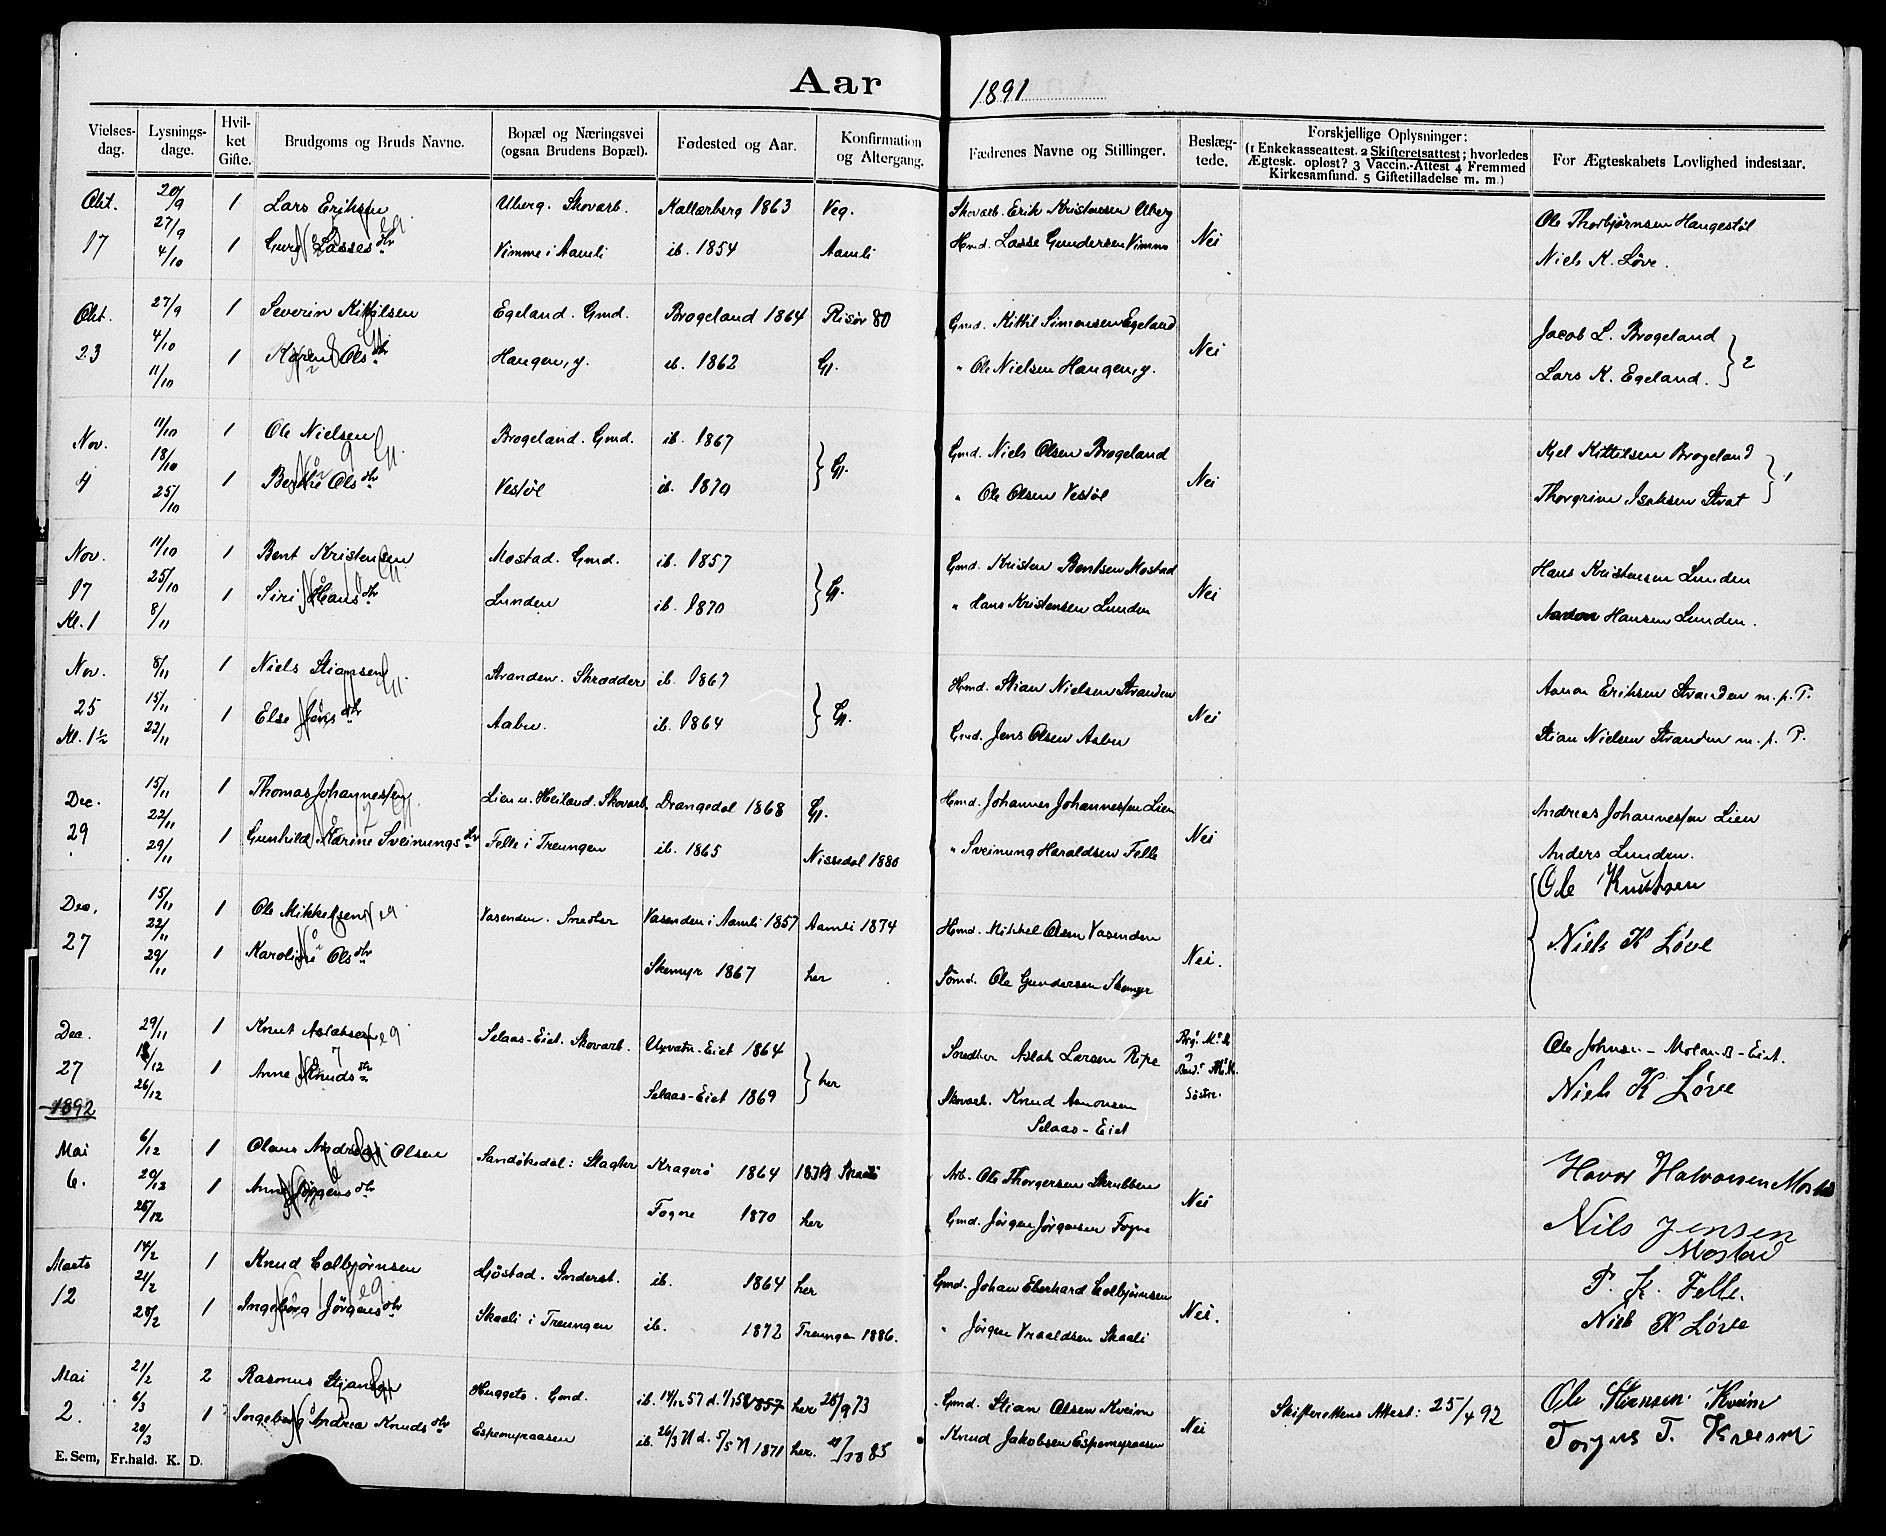 Aar 1891
Vielses-dag. Lysnings-dage. Hvil-ket Gifte. Brudgoms og Bruds Navne. Bopæl og Næringsvei (ogsaa Brudens Bopæl). Fødested og Aar. Konfirmation og Altergang. Fædrenes Navne og Stillinger. Beslæg-tede. Forskjellige Oplysninger: (1 Enkekasseattest. 2 Skifteretsattest; hvorledes Ægtesk. opløst? 3 Vaccin.-Attest 4 Fremmed Kirkesamfund. 5 Giftetilladelse m. m.) For Ægteskabets Lovlighed indestaar.
Okt. 20/9 1 Lars Eriksen Uberg. Skovarb. 1863 Veg. Skovarb. Erik Kristensen Uberg Ole Thorbjørnsen Haugestøl
27/9
17 4/10 1 Guro Lassesdtr Vimme i Aamli ib. 1854 Aamli Hmd. Lasse Gundersen Vimme Nei Niels K. Løve.
Okt. 27/9 1 Severin Kittilsen Egeland. Gmd. Brøgeland 1864 Risør 80 Gmd. Kittil Simonsen Egeland Jacob L. Brøgeland
4/10
23 11/10 1 Karen Olsdtr Haugen, y. ib. 1862 Gj. " Ole Nielsen Haugen, y. Nei Lars K. Egeland. } 2
Nov. 11/10 1 Ole Nielsen Brøgeland. Gmd. ib. 1867 Gmd. Niels Olsen Brøgeland Kjel Kittilsen Brøgeland
18/10
4 25/10 1 Berthe Olsdtr Vestøl ib. 1870 } Gj. " Ole Olsen Vestøl Nei Thorgrim Isaksen Strat } 1
Nov. 11/10 1 Bent Kristensen Mostad. Gmd. ib. 1857 Gmd. Kristen Bentsen Mostad Hans Kristensen Lunden
17 25/10 1 Siri Hansdtr Lunden ib. 1870 } Gj. " Hans Kristensen Lunden Nei
Kl. 1 8/11 Hansen Lunden.
Nov. 8/11 1 Niels Stiansen Stranden. Skrædder ib. 1867 Hmd. Stian Nielsen Stranden Aanon Eriksen Stranden m. p. P.
25 15/11 1 Else Jensdtr Aabu. ib. 1864 } Gj. Gmd. Jens Olsen Aabu Nei
Kl. 1½ 22/11 Stian Nielsen Stranden m. p. P.
Dec. 15/11 1 Thomas Johannessen Lien u. Heiland. Skovarb. Drangedal 1868 Gj. Hmd. Johannes Johannessen Lien Andreas Johannessen Lien
22/11
29 29/11 1 Gunhild Karine Sveinungsdtr Felle i Treungen ib. 1865 Nissedal 1880 " Sveinung Haraldsen Felle Nei Anders Lunden.
Dec. 15/11 1 Ole Mikkelsen Vasenden. Snedker Vasenden i Aamli 1857 Aamli 1874 Hmd. Mikkel Olsen Vasenden Ole Knutsen
22/11
27 29/11 1 Karoline Olsdtr Skemyr 1867 her Ole Gundersen Skemyr Nei. Niels K Løve
Dec. 29/11 1 Knut Aslaksen Selaas-Eiet. Skovarb. Uxvatn-Eiet 1864 Snedker Aslak Larsen Ripe Ole Johnsen - Molands-Eiet.
27 /12 1 Anne Knudsdtr Selaas-Eiet 1869 } her Skovarb. Knud Aanonsen Selaas-Eiet Søstre. Niels K Løve
26/12
1892
Mai 6/12 1 Olaus Andreas Olsen Sandøkedal: Slagter Kragerø 1864 Arb. Ole Thorgersen Skrubben Havor Halvorsen
6. 20/12 1 Anne Jørgensdtr Fogne 1870 her Gmd. Jørgen Jørgensen Fogne Nei Nils Jensen
26/12 Mostad
Marts 14/2 1 Knud Colbjørnsen Gjøstad. Inderst. ib. 1864 her Gmd. Johan Eberhard Colbjørnsen T. K. Felle.
21/2
12 28/2 1 Ingeborg Jørgensdtr Skaali i Treungen ib. 1872 Treungen 1886. " Jørgen Vraaldsen Skaali Nei. Niels K Løve
Mai 21/2 2 Rasmus Stiansen Huggets. Gmd. ib. 14/12 57 her 28/9 73 Gmd. Stian Olsen Kveim Skifterettens Attest: 25/4 92 Ole Stiansen Kveim
6/3
2. 20/3 1 Ingeborg Andrea Knudsdtr Espemyraasen ib. 26/3 71 d. 5/5 71 1871 her. 85 " Knud Jakobsen Espemyraasen Nei Torjus T. Kveim
E. Sem, Fr.hald. K. D.